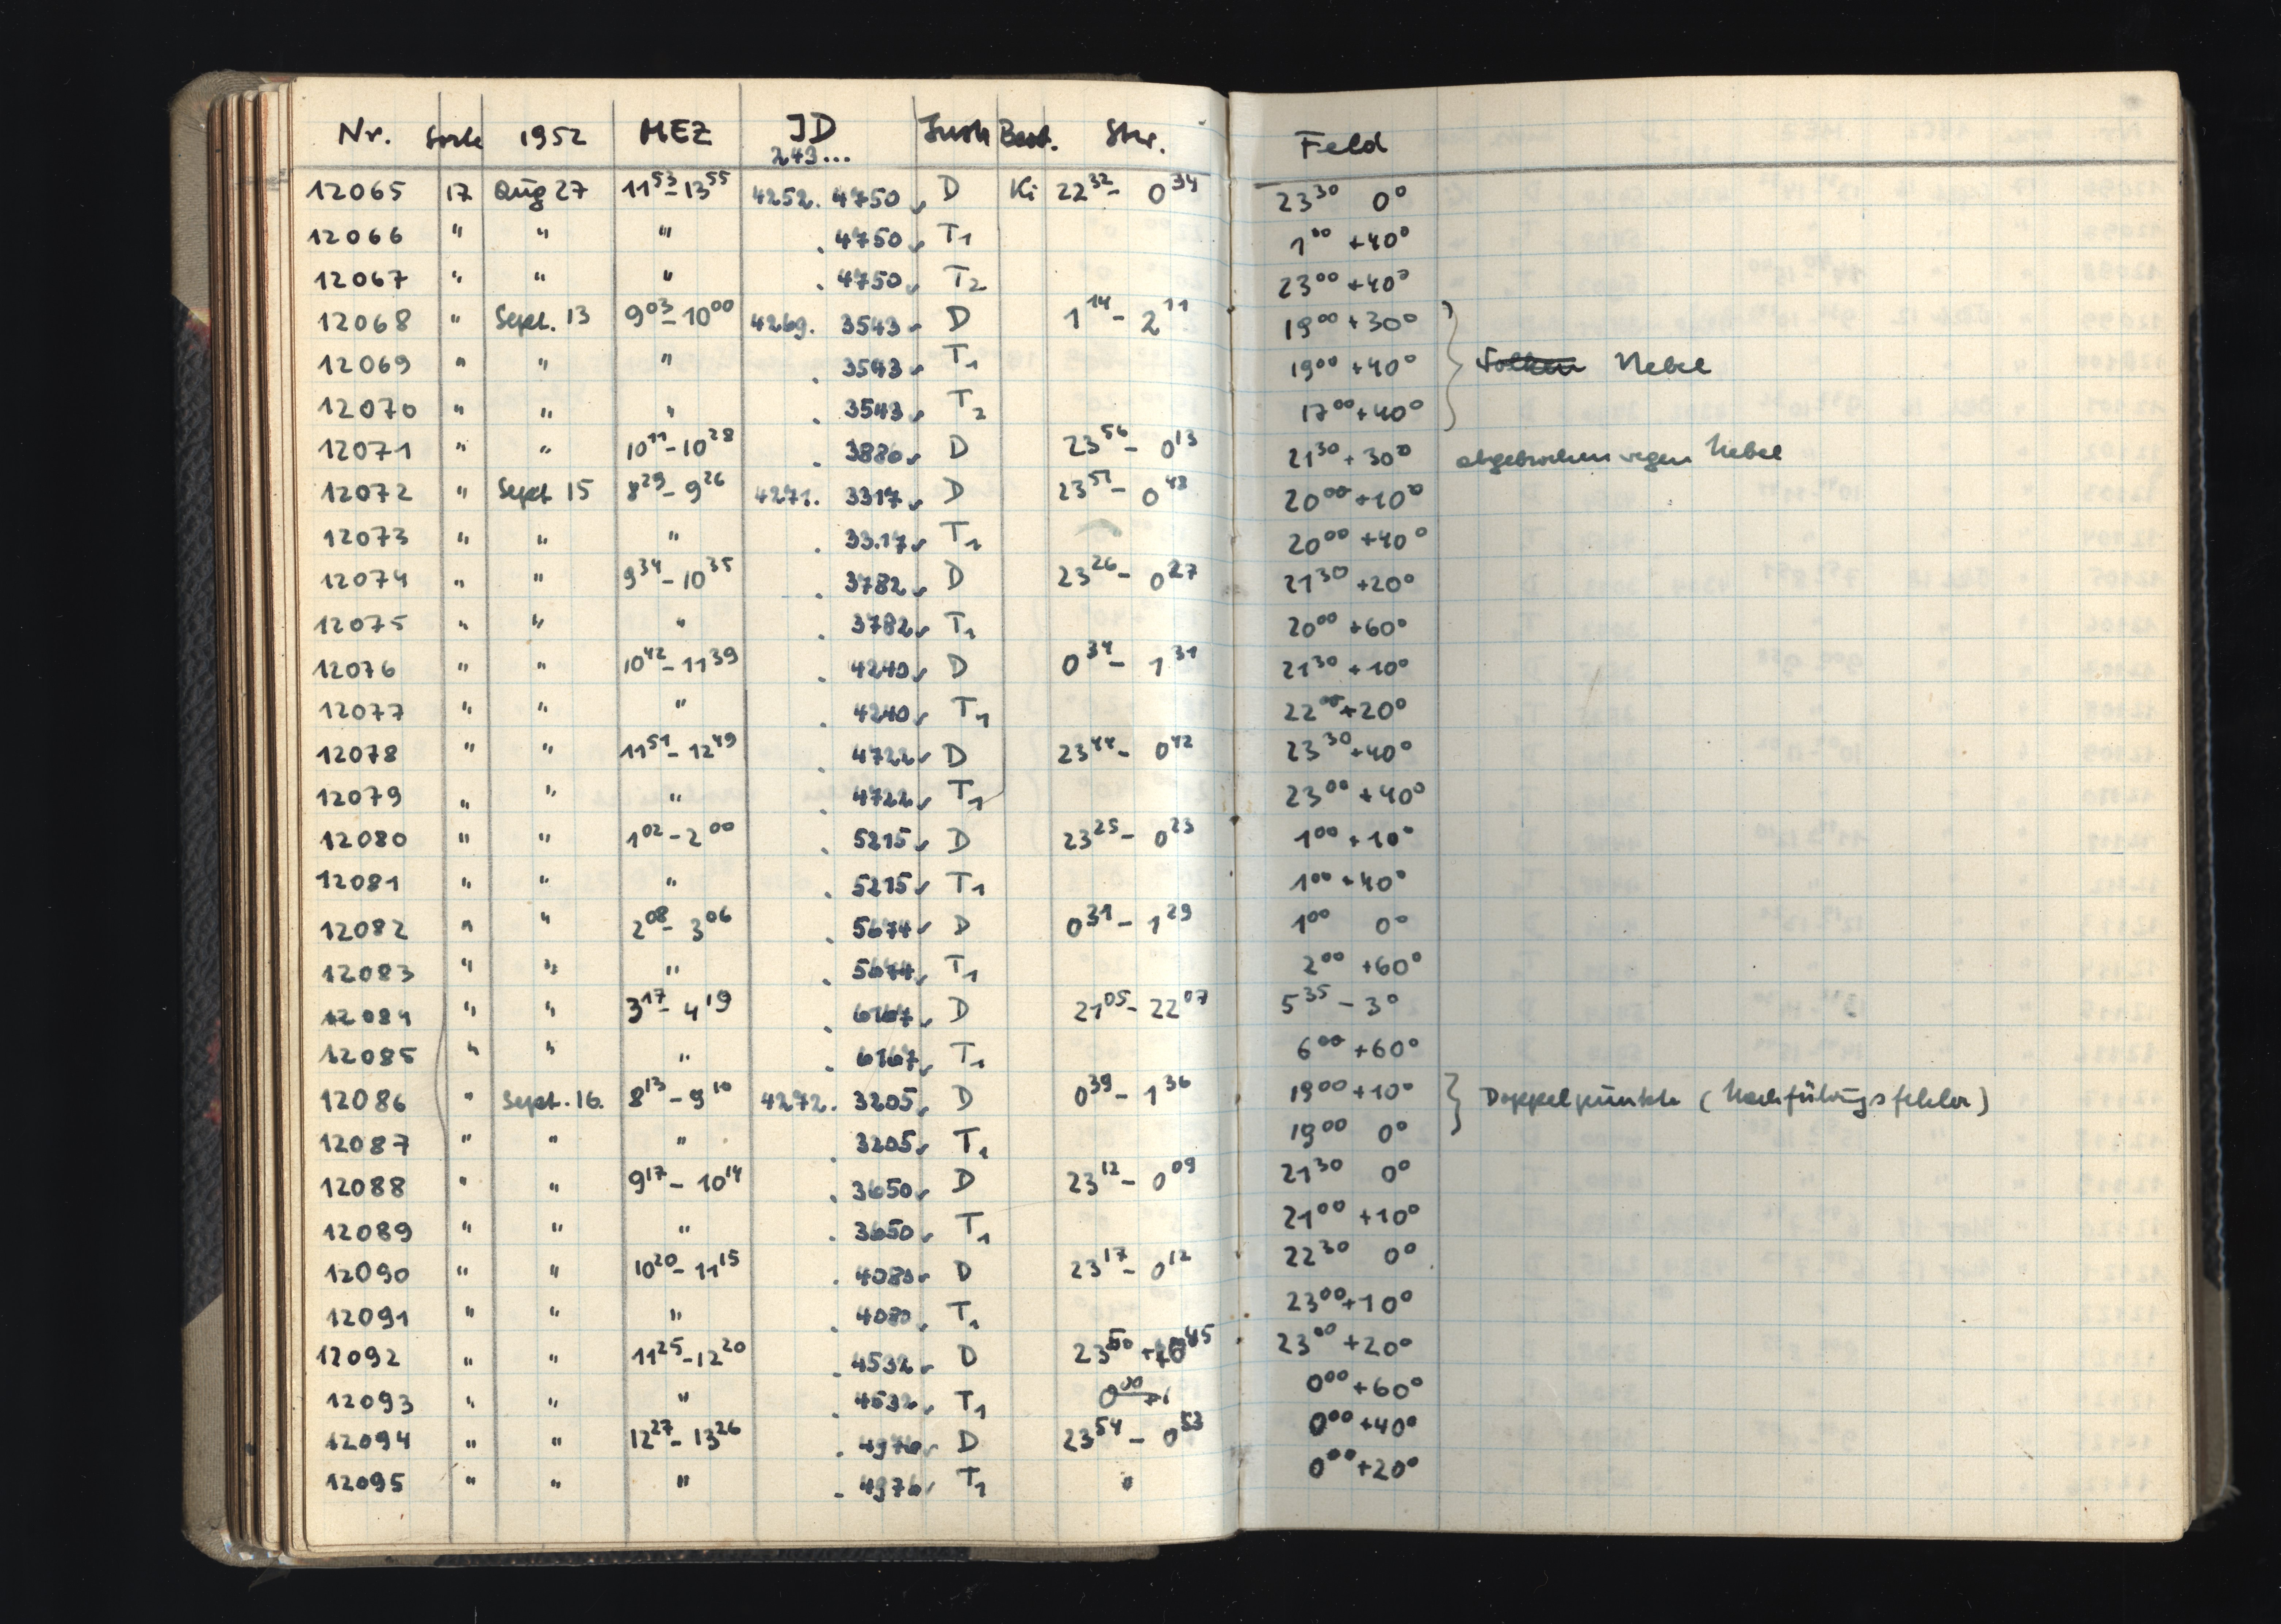 Nr. Sorte 1952 MEZ JD Instr. Beob. Stw. Feld
243...
12065 17 Aug 27 11⁵³-13⁵⁵ 4252. 4750 D Ki 22³²- 0³⁴ 23³⁰ 0°
12066 " " " . 4750 T₁ 1⁰⁰ +40°
12067 " " " . 4750 T₂ 23⁰⁰ +40°
12068 " Sept. 13 9⁰³-10⁰⁰ 4269. 3543 D 1¹⁴- 2¹¹ 19⁰⁰ +30°
12069 " " " . 3543 T₁ 19⁰⁰ +40° Nebel
12070 " " " . 3543 T₂ 17⁰⁰ +40°
12071 " " 10¹¹-10²⁸ . 3880 D 23⁵⁶- 0¹³ 21³⁰ +30° abgebrochen wegen Nebel
12072 " Sept 15 8²⁹-9²⁶ 4271. 3317 D 23⁵¹- 0⁴⁸ 20⁰⁰ +10°
12073 " " " . 3317 T₁ 20⁰⁰ +40°
12074 " " 9³⁴-10³⁵ . 3782 D 23²⁶- 0²⁷ 21³⁰ +20°
12075 " " " . 3782 T₁ 20⁰⁰ +60°
12076 " " 10⁴²-11³⁹ . 4240 D 0³⁴- 1³¹ 21³⁰ +10°
12077 " " " . 4240 T₁ 22⁰⁰ +20°
12078 " " 11⁵¹-12⁴⁹ . 4722 D 23⁴⁴- 0⁴² 23³⁰ +40°
12079 " " " . 4722 T₁ 23⁰⁰ +40°
12080 " " 1⁰²-2⁰⁰ . 5215 D 23²⁵- 0²³ 1⁰⁰ +10°
12081 " " " . 5215 T₁ 1⁰⁰ +40°
12082 " " 2⁰⁸-3⁰⁶ . 5674 D 0³¹- 1²⁹ 1⁰⁰ 0°
12083 " " " . 5674 T₁ 2⁰⁰ +60°
12084 " " 3¹⁷-4¹⁹ . 6167 D 21⁰⁵- 22⁰⁷ 5³⁵ -3°
12085 " " " . 6167 T₁ 6⁰⁰ +60°
12086 " Sept. 16. 8¹³-9¹⁰ 4272. 3205 D 0³⁹- 1³⁶ 19⁰⁰ +10° Doppelpunkte (Nachführungsfehler)
12087 " " " . 3205 T₁ 19⁰⁰ 0°
12088 " " 9¹⁷-10¹⁴ . 3650 D 23¹²- 0⁰⁹ 21³⁰ 0°
12089 " " " . 3650 T₁ 21⁰⁰ +10°
12090 " " 10²⁰-11¹⁵ . 4080 D 23¹⁷- 0¹² 22³⁰ 0°
12091 " " " . 4080 T₁ 23⁰⁰ +10°
12092 " " 11²⁵-12²⁰ . 4532 D 23⁵⁰ 0⁴⁵ 23⁰⁰ +20°
12093 " " " . 4532 T₁ 0⁰⁰ +60°
12094 " " 12²⁷-13²⁶ . 4976 D 23⁵⁴- 0⁵³ 0⁰⁰ +40°
12095 " " " . 4976 T₁ " 0⁰⁰ +20°